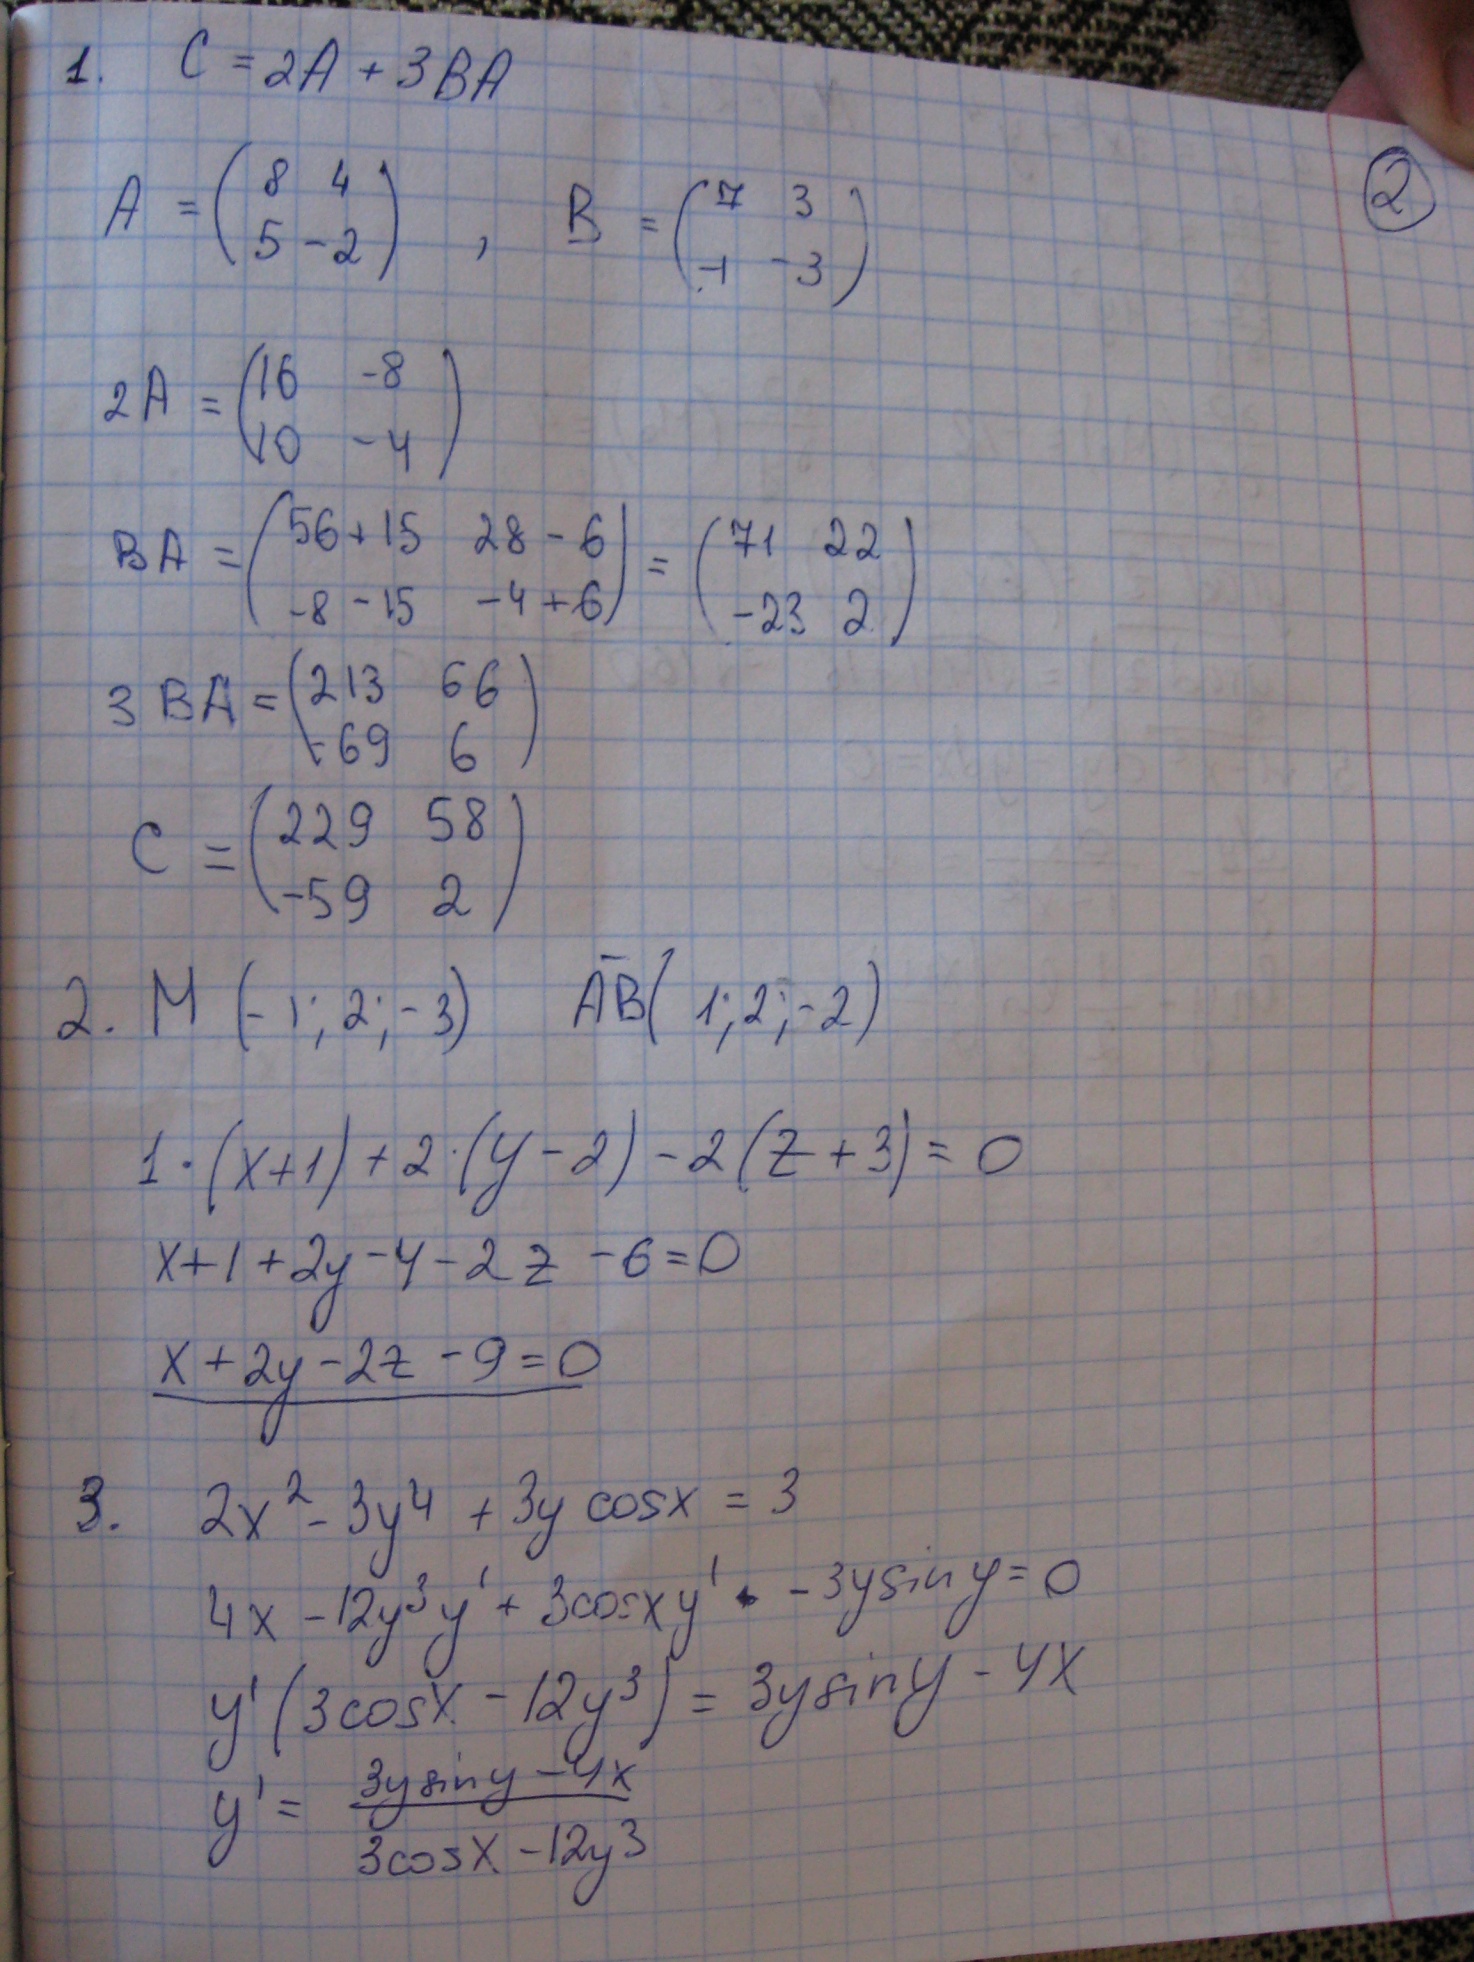 1. C = 2A + 3BA
2
A = (8 4
5 -2) , B = (7 3
-1 -3)
2A = (16 -8
10 -4)
BA = (56+15 28-6
-8-15 -4+6) = (71 22
-23 2)
3BA = (213 66
-69 6)
C = (229 58
-59 2)
2. M (-1; 2; -3) A̅B̅(1; 2; -2)
1·(x+1)+2·(y-2)-2(z+3)=0
x+1+2y-4-2z-6=0
x+2y-2z-9=0
3. 2x² - 3y⁴ + 3y cosx = 3
4x - 12y³y' + 3cosxy' - 3ysiny = 0
y'(3cosx - 12y³) = 3ysiny - 4x
y' = 3ysiny - 4x
3cosx - 12y³